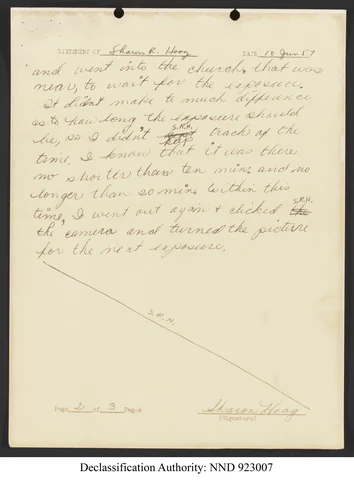 STATEMENT OF Sharon R. Hoag DATE 10 Jun 57
and went into the church, that was
near, to wait for the exposure.
It didn't make to much difference
as to how long the exposure should
be, so I didn't keep S.R.H. track of the
time. I know that it was there
no shorter than ten mins and no
longer than 20 mins within this
time, I went out again & clicked the S.R.H.
the camera and turned the picture
for the next exposure.
S.R.H.
Page 2 of 3 Pages
Sharon Hoag
(Signature)
Declassification Authority: NND 923007